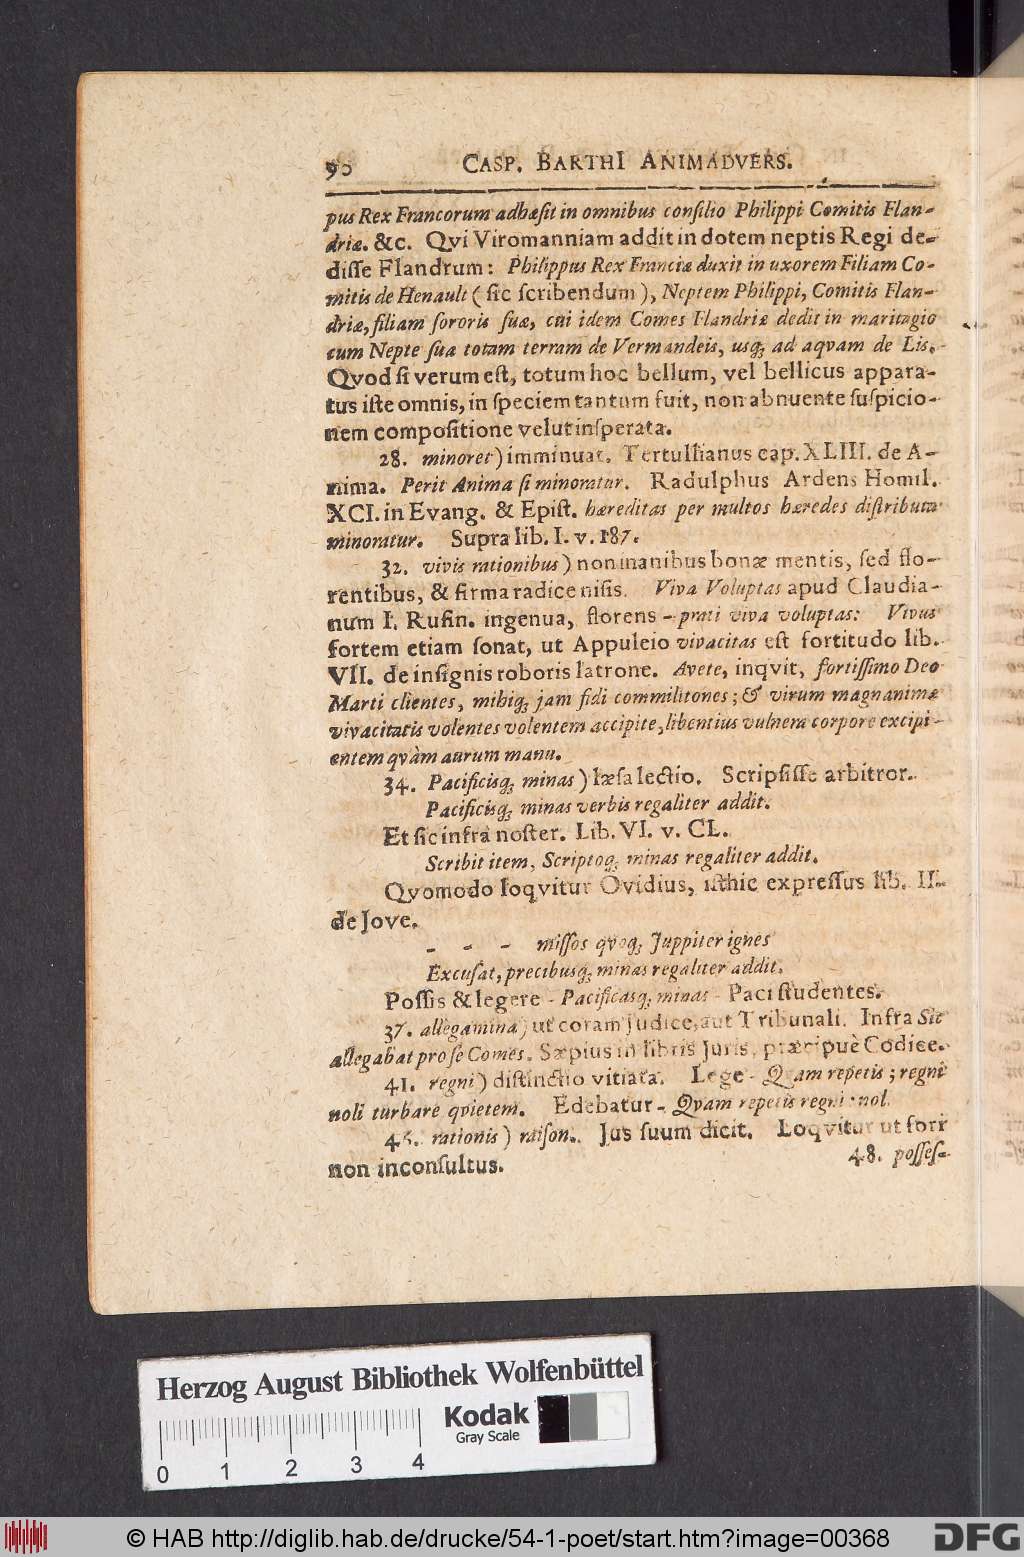 90 CASP. BARTHI ANIMADVERS.
pus Rex Francorum adhæſit in omnibus conſilio Philippi Comitis Flan-
driæ. &c. Qvi Viromanniam addit in dotem neptis Regi de-
diſſe Flandrum: Philippus Rex Franciæ duxit in uxorem Filiam Co-
mitis de Henault (ſic ſcribendum), Neptem Philippi, Comitis Flan-
driæ, filiam ſororis ſuæ, cui idem Comes Flandriæ dedit in maritagio
cum Nepte ſua totam terram de Vermandeis, usq; ad aqvam de Lis.
Qvod ſi verum eſt, totum hoc bellum, vel bellicus appara-
tus iſte omnis, in ſpeciem tantum fuit, non abnuente ſuſpicio-
nem compoſitione velut inſperata.
28. minoret) imminuat. Tertullianus cap. XLIII. de A-
nima. Perit Anima ſi minoratur. Radulphus Ardens Homil.
XCI. in Evang. & Epiſt. hæreditas per multos hæredes diſtributa
minoratur. Supra lib. I. v. 187.
32. vivis rationibus) non inanibus bonæ mentis, ſed flo-
rentibus, & firma radice niſis. Viva Voluptas apud Claudia-
num I. Rufin. ingenua, florens - prati viva voluptas: Vivus
fortem etiam ſonat, ut Appuleio vivacitas eſt fortitudo lib.
VII. de inſignis roboris latrone. Avete, inqvit, fortiſſimo Deo
Marti clientes, mihiq; jam fidi commilitones; & virum magnanimæ
vivacitatis volentes volentem accipite, libentius vulnera corpore excipi-
entem qvàm aurum manu.
34. Pacificisq; minas) læſa lectio. Scripſiſſe arbitror.
Pacificisq; minas verbis regaliter addit.
Et ſic infra noſter. Lib. VI. v. CL.
Scribit item, Scriptoq; minas regaliter addit.
Qvomodo loqvitur Ovidius, iſthic expreſſus lib. II.
de Jove.
- - - miſſos qvoq; Juppiter ignes
Excuſat, precibusq; minas regaliter addit.
Poſſis & legere - Pacificasq; minas - Paci ſtudentes.
37. allegamina) ut coram Judice, aut Tribunali. Infra Sic
allegabat pro ſe Comes. Sæpius in libris Juris, præcipuè Codice.
41. regni) diſtinctio vitiata. Lege - Qvam repetis; regni
noli turbare qvietem. Edebatur - Qvam repetis regni: nol.
rationis) raiſon. Jus ſuum dicit. Loqvitur ut forr
non inconſultus.
48. poſſeſ-
Herzog August Bibliothek Wolfenbüttel
0 1 2 3 4
Kodak
Gray Scale
© HAB http://diglib.hab.de/drucke/54-1-poet/start.htm?image=00368
DFG